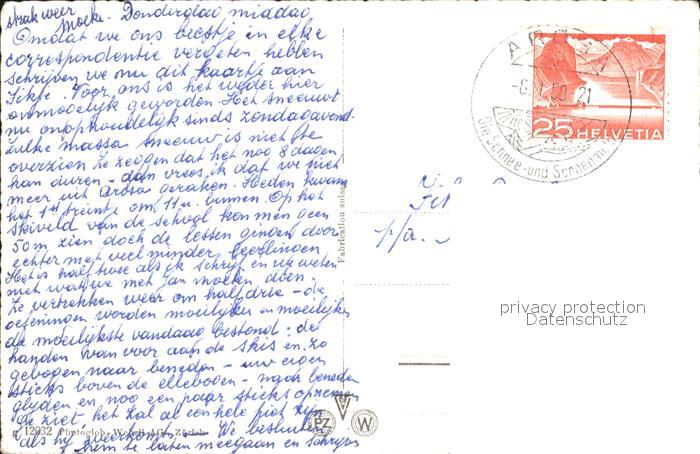 straks weer Moeki. Donderdag middag
Omdat we ons beestje in elke
correspondentie vergeten hebben
schrijven we nu dit kaartje aan
Fikfe. Voor ons is het weder hier
onmogelijk geworden. Het sneeuwt
nu onophoudelijk sinds zondagavond.
Zulke massa sneeuw is niet te
overzien. Ze zeggen dat het nog 8 dagen
kan duren - dan vrees ik dat we niet
meer uit Arosa geraken. Heden kwam
het 1ste treintje om 11 u. binnen. Op het
skiveld van de school kon men geen
50 m zien doch de lessen gingen door
echter met veel minder leerlingen
Het is half twee als ik schrijf en wij weten
niet wat we met Jan moeten doen.
Ze vertrekken weer om half drie - de
oefeningen worden moeilijker en moeilijker
de moeilijkste vandaag bestond: de
handen van voor aan de skis en zo
gebogen naar beneden - uw eigen
sticks boven de elleboog - naar beneden
glyden en nog een paar sticks opnemen
Je ziet, het zal al een hele piet zijn
als hij weerkomt. We besluiten
hem te laten meegaan en schrijven
12032 Photoglob-Wehrli AG., Zürich
Fabrication suisse
PZ W
AROSA
21
Die Schnee- und Sonnen
25 HELVETIA
p/a.
privacy protection
Datenschutz